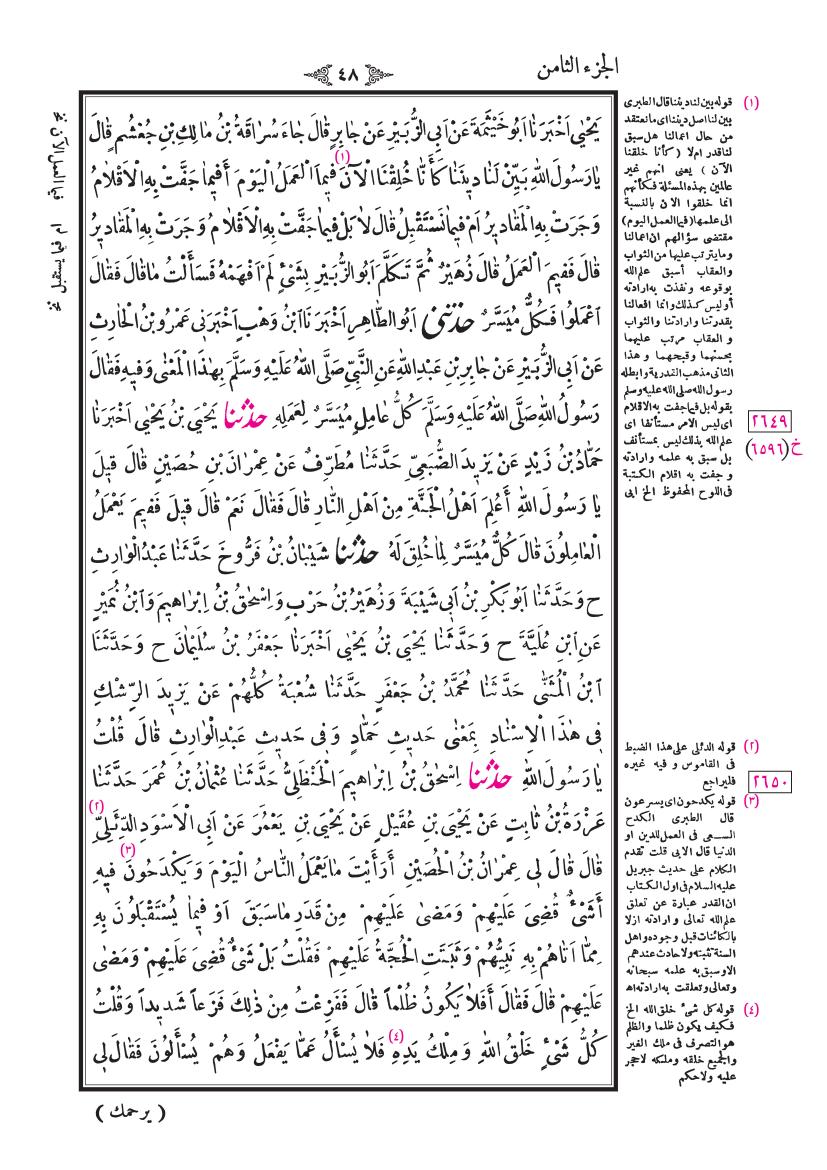 الجزء الثامن
٤٨
يَحْيٰى اَخْبَرَنَا اَبُوخَيْثَمَةَ عَنْ اَبِى الزُّبَيْرِ عَنْ جَابِرٍ قَالَ جَاءَ سُرَاقَةُ بْنُ مَالِكِ بْنِ جُعْشُمٍ قَالَ
يَا رَسُولَ اللهِ بَيِّنْ لَنَا دِينَنَا كَأَنَّا خُلِقْنَا الْآنَ (١) فِيمَا الْعَمَلُ الْيَوْمَ أَفِيمَا جَفَّتْ بِهِ الْاَقْلَامُ
وَجَرَتْ بِهِ الْمَقَادِيرُ اَمْ فِيمَا نَسْتَقْبِلُ قَالَ لَا بَلْ فِيمَا جَفَّتْ بِهِ الْاَقْلَامُ وَجَرَتْ بِهِ الْمَقَادِيرُ
قَالَ فَفِيمَ الْعَمَلُ قَالَ زُهَيْرٌ ثُمَّ تَكَلَّمَ اَبُو الزُّبَيْرِ بِشَىْءٍ لَمْ اَفْهَمْهُ فَسَأَلْتُ مَا قَالَ فَقَالَ
اعْمَلُوا فَكُلٌّ مُيَسَّرٌ حَدَّثَنِى اَبُو الطَّاهِرِ اَخْبَرَنَا ابْنُ وَهْبٍ اَخْبَرَنِى عَمْرُو بْنُ الْحَارِثِ
عَنْ اَبِى الزُّبَيْرِ عَنْ جَابِرِ بْنِ عَبْدِ اللهِ عَنِ النَّبِىِّ صَلَّى اللهُ عَلَيْهِ وَسَلَّمَ بِهٰذَا الْمَعْنٰى وَفِيهِ فَقَالَ
رَسُولُ اللهِ صَلَّى اللهُ عَلَيْهِ وَسَلَّمَ كُلُّ عَامِلٍ مُيَسَّرٌ لِعَمَلِهِ حَدَّثَنَا يَحْيَى بْنُ يَحْيٰى اَخْبَرَنَا
حَمَّادُ بْنُ زَيْدٍ عَنْ يَزِيدَ الضُّبَعِىِّ حَدَّثَنَا مُطَرِّفٌ عَنْ عِمْرَانَ بْنِ حُصَيْنٍ قَالَ قِيلَ
يَا رَسُولَ اللهِ أَعُلِمَ اَهْلُ الْجَنَّةِ مِنْ اَهْلِ النَّارِ قَالَ فَقَالَ نَعَمْ قَالَ قِيلَ فَفِيمَ يَعْمَلُ
الْعَامِلُونَ قَالَ كُلٌّ مُيَسَّرٌ لِمَا خُلِقَ لَهُ حَدَّثَنَا شَيْبَانُ بْنُ فَرُّوخَ حَدَّثَنَا عَبْدُ الْوَارِثِ
ح وَحَدَّثَنَا اَبُو بَكْرِ بْنُ اَبِى شَيْبَةَ وَزُهَيْرُ بْنُ حَرْبٍ وَاِسْحٰقُ بْنُ اِبْرَاهِيمَ وَابْنُ نُمَيْرٍ
عَنِ ابْنِ عُلَيَّةَ ح وَحَدَّثَنَا يَحْيَى بْنُ يَحْيٰى اَخْبَرَنَا جَعْفَرُ بْنُ سُلَيْمَانَ ح وَحَدَّثَنَا
ابْنُ الْمُثَنّٰى حَدَّثَنَا مُحَمَّدُ بْنُ جَعْفَرٍ حَدَّثَنَا شُعْبَةُ كُلُّهُمْ عَنْ يَزِيدَ الرِّشْكِ
فِى هٰذَا الْاِسْنَادِ بِمَعْنٰى حَدِيثِ حَمَّادٍ وَفِى حَدِيثِ عَبْدِ الْوَارِثِ قَالَ قُلْتُ
يَا رَسُولَ اللهِ حَدَّثَنَا اِسْحٰقُ بْنُ اِبْرَاهِيمَ الْحَنْظَلِىُّ حَدَّثَنَا عُثْمَانُ بْنُ عُمَرَ حَدَّثَنَا
عَزْرَةُ بْنُ ثَابِتٍ عَنْ يَحْيَى بْنِ عُقَيْلٍ عَنْ يَحْيَى بْنِ يَعْمَرَ عَنْ اَبِى الْاَسْوَدِ الدِّئَلِىِّ (٢)
قَالَ قَالَ لِى عِمْرَانُ بْنُ الْحُصَيْنِ أَرَأَيْتَ مَا يَعْمَلُ النَّاسُ الْيَوْمَ وَيَكْدَحُونَ (٣) فِيهِ
أَشَىْءٌ قُضِىَ عَلَيْهِمْ وَمَضٰى عَلَيْهِمْ مِنْ قَدَرِ مَا سَبَقَ اَوْ فِيمَا يُسْتَقْبَلُونَ بِهِ
مِمَّا اَتَاهُمْ بِهِ نَبِيُّهُمْ وَثَبَتَتِ الْحُجَّةُ عَلَيْهِمْ فَقُلْتُ بَلْ شَىْءٌ قُضِىَ عَلَيْهِمْ وَمَضٰى
عَلَيْهِمْ قَالَ فَقَالَ أَفَلَا يَكُونُ ظُلْماً قَالَ فَفَزِعْتُ مِنْ ذٰلِكَ فَزَعاً شَدِيداً وَقُلْتُ
كُلُّ شَىْءٍ خَلْقُ اللهِ وَمِلْكُ يَدِهِ (٤) فَلَا يُسْأَلُ عَمَّا يَفْعَلُ وَهُمْ يُسْأَلُونَ فَقَالَ لِى
( يرحمك )
(١) قوله بين لنا ديننا قال الطبرى
بين لنا اصل ديننا اى ما نعتقد
من حال اعمالنا هل سبق
لنا قدر ام لا ( كأنا خلقنا
الآن ) يعنى انهم غير
عالمين بهذه المسئلة فكأنهم
انما خلقوا الان بالنسبة
الى علمها (فيما العمل اليوم)
مقتضى سؤالهم ان اعمالنا
وما يترتب عليها من الثواب
والعقاب أسبق علم الله
بوقوعه ونفذت به ارادته
أوليس كذلك وانما افعالنا
بقدرتنا وارادتنا والثواب
و العقاب مرتب عليها
بحسنها وقبحها و هذا
الثانى مذهب القدرية وابطله
رسول الله صلى الله عليه وسلم
بقوله بل فيما جفت به الاقلام
اى ليس الامر مستأنفا اى
علم الله بذلك ليس بمستأنف
بل سبق به علمه وارادته
و جفت به اقلام الكتبة
فى اللوح المحفوظ الخ ابى
٢٦٤٩
خ (٦٥٩٦)
(٢) قوله الدئلى على هذا الضبط
فى القاموس و فيه غيره
فليراجع
٢٦٥٠
(٣) قوله يكدحون اى يسرعون
قال الطبرى الكدح
السعى فى العمل للدين او
الدنيا قال الابى قلت تقدم
الكلام على حديث جبريل
عليه السلام فى اول الكتاب
ان القدر عبارة عن تعلق
علم الله تعالى و ارادته ازلا
بالكائنات قبل وجوده واهل
السنة تثبته ولا حادث عندهم
الا وسبق به علمه سبحانه
وتعالى وتعلقت به ارادته اه
(٤) قوله كل شىء خلق الله الخ
فكيف يكون ظلما والظلم
هو التصرف فى ملك الغير
والجميع خلقه وملكه لا حجر
عليه ولا حكم
فيما العمل الآن نخ
ام فيما يستقبل نخ